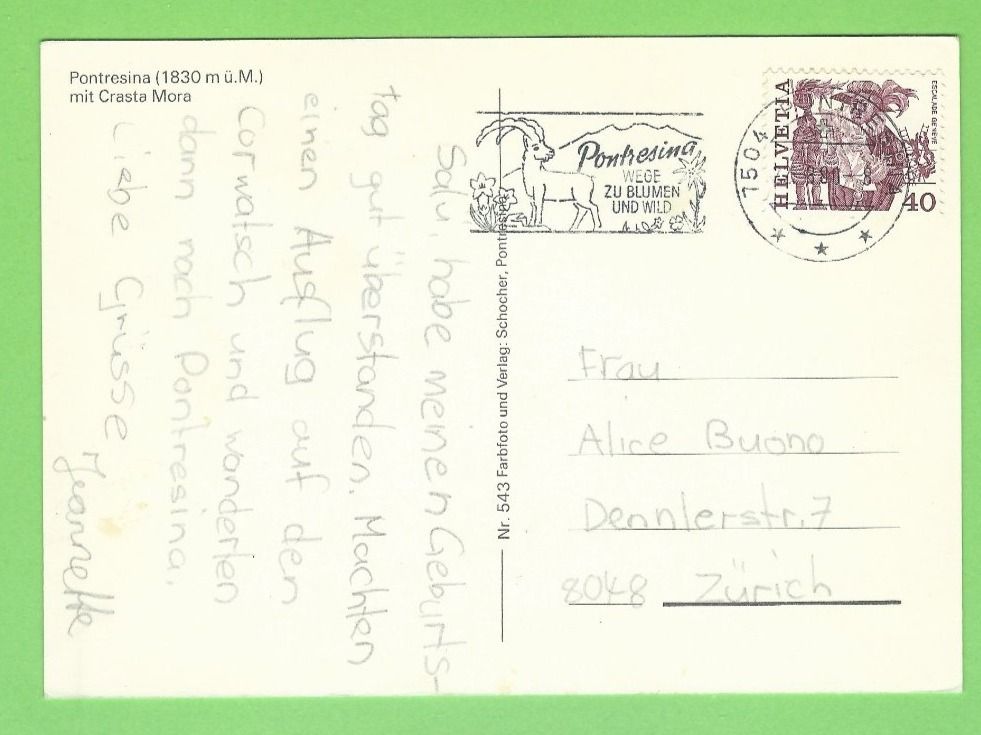 Pontresina (1830 m ü.M.)
mit Crasta Mora
Salü, habe meinen Geburts-
tag gut überstanden. Machten
einen Ausflug auf den
Corwatsch und wanderten
dann nach Pontresina.
Liebe Grüsse
Jeannette
Nr. 543 Farbfoto und Verlag: Schocher, Pontresina
Pontresina
WEGE
ZU BLUMEN
UND WILD
7504
HELVETIA
ESCALADE GENÈVE
40
Frau
Alice Buono
Dennlerstr. 7
8048 Zürich